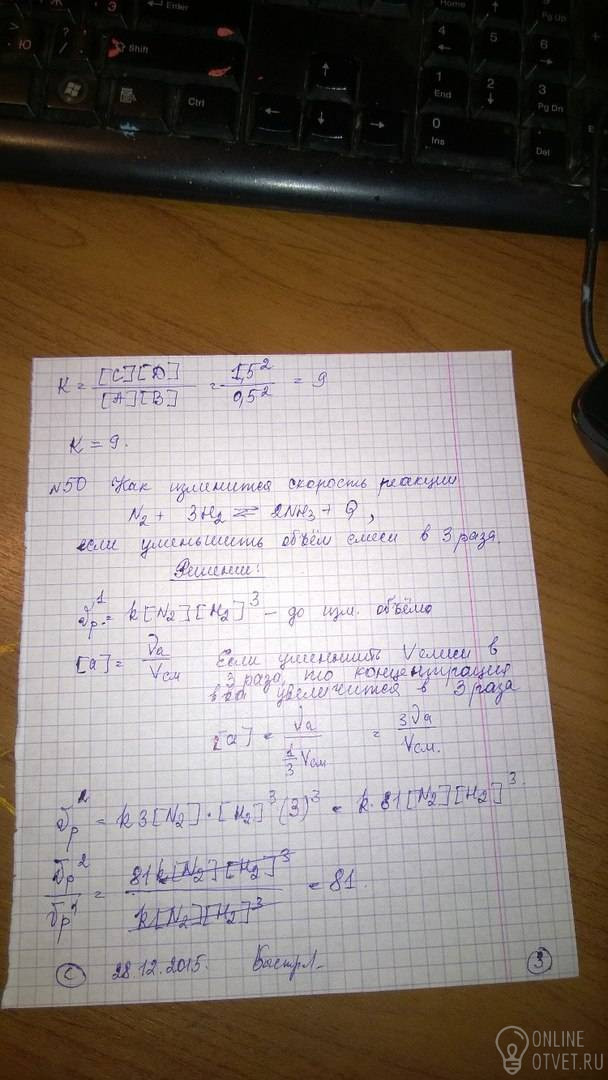 Enter
Shift
Ctrl
Home
Pg Up
4
5
6
1
End
2
3
Pg Dn
0
Ins
Del
K = [C][D] / [A][B] = 1,5² / 0,5² = 9
K = 9.
№50 Как изменится скорость реакции
N₂ + 3H₂ ⇌ 2NH₃ + Q,
если уменьшить объём смеси в 3 раза.
Решение:
υр¹ = k[N₂][H₂]³ – до изм. объёма
[a] = νa / Vсм Если уменьшить Vсмеси в
3 раза, то концентрация
в-ва увеличится в 3 раза
[a] = νa / ⅓Vсм = 3νa / Vсм.
υр² = k3[N₂]·[H₂]³(3)³ = k·81[N₂][H₂]³.
υр² / υр¹ = 81k[N₂][H₂]³ / k[N₂][H₂]³ = 81.
С 28.12.2015. 3
ONLINE
OTVET.RU